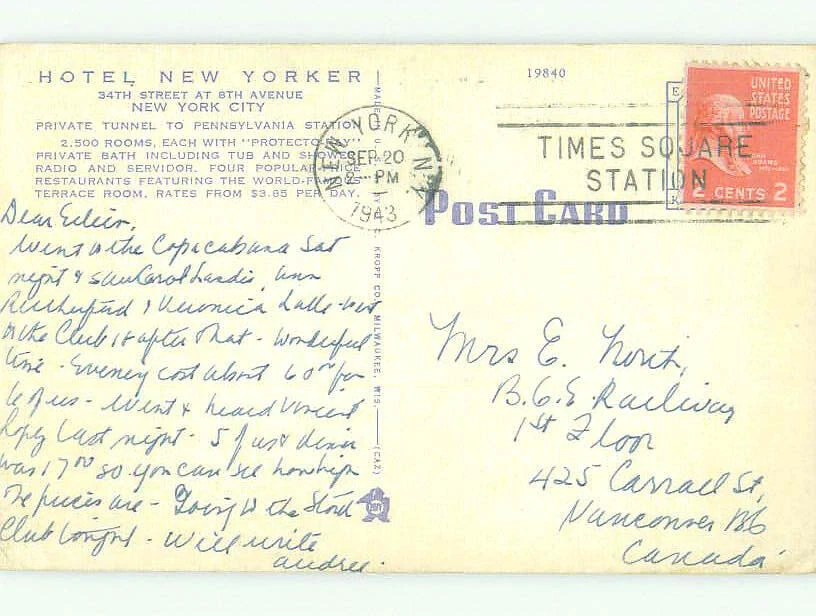 HOTEL NEW YORKER
34TH STREET AT 8TH AVENUE
NEW YORK CITY
PRIVATE TUNNEL TO PENNSYLVANIA STATION
2,500 ROOMS, EACH WITH "PROTECTO
PRIVATE BATH INCLUDING TUB AND SHOWER
RADIO AND SERVIDOR. FOUR POPULAR PRICE
RESTAURANTS FEATURING THE WORLD-FAMOUS
TERRACE ROOM. RATES FROM $3.85 PER DAY.
Dear Eileen,
Went to the Copacabana Sat
night & saw Carol Landis, Ann
Rutherford & Veronica Lake
to the Club 18 after that - Wonderful
time - Evening cost about 60⁰⁰ for
6 of us - Went & heard Vincent
Lopez last night - 5 of us & dinner
was 17⁰⁰ so you can see how high
the prices are - Going to the Stork
Club tonight - Will write
Audree.
C. KROPP CO., MILWAUKEE, WIS.
(CAZ)
19840
NEW YORK, N.Y.
SEP 20
PM
1943
TIMES SQUARE
STATION
UNITED
STATES
POSTAGE
JOHN
ADAMS
2 CENTS 2
POST CARD
Mrs E. North,
B.C.E Railway
1st Floor
425 Carrall St,
Vancouver BC
Canada